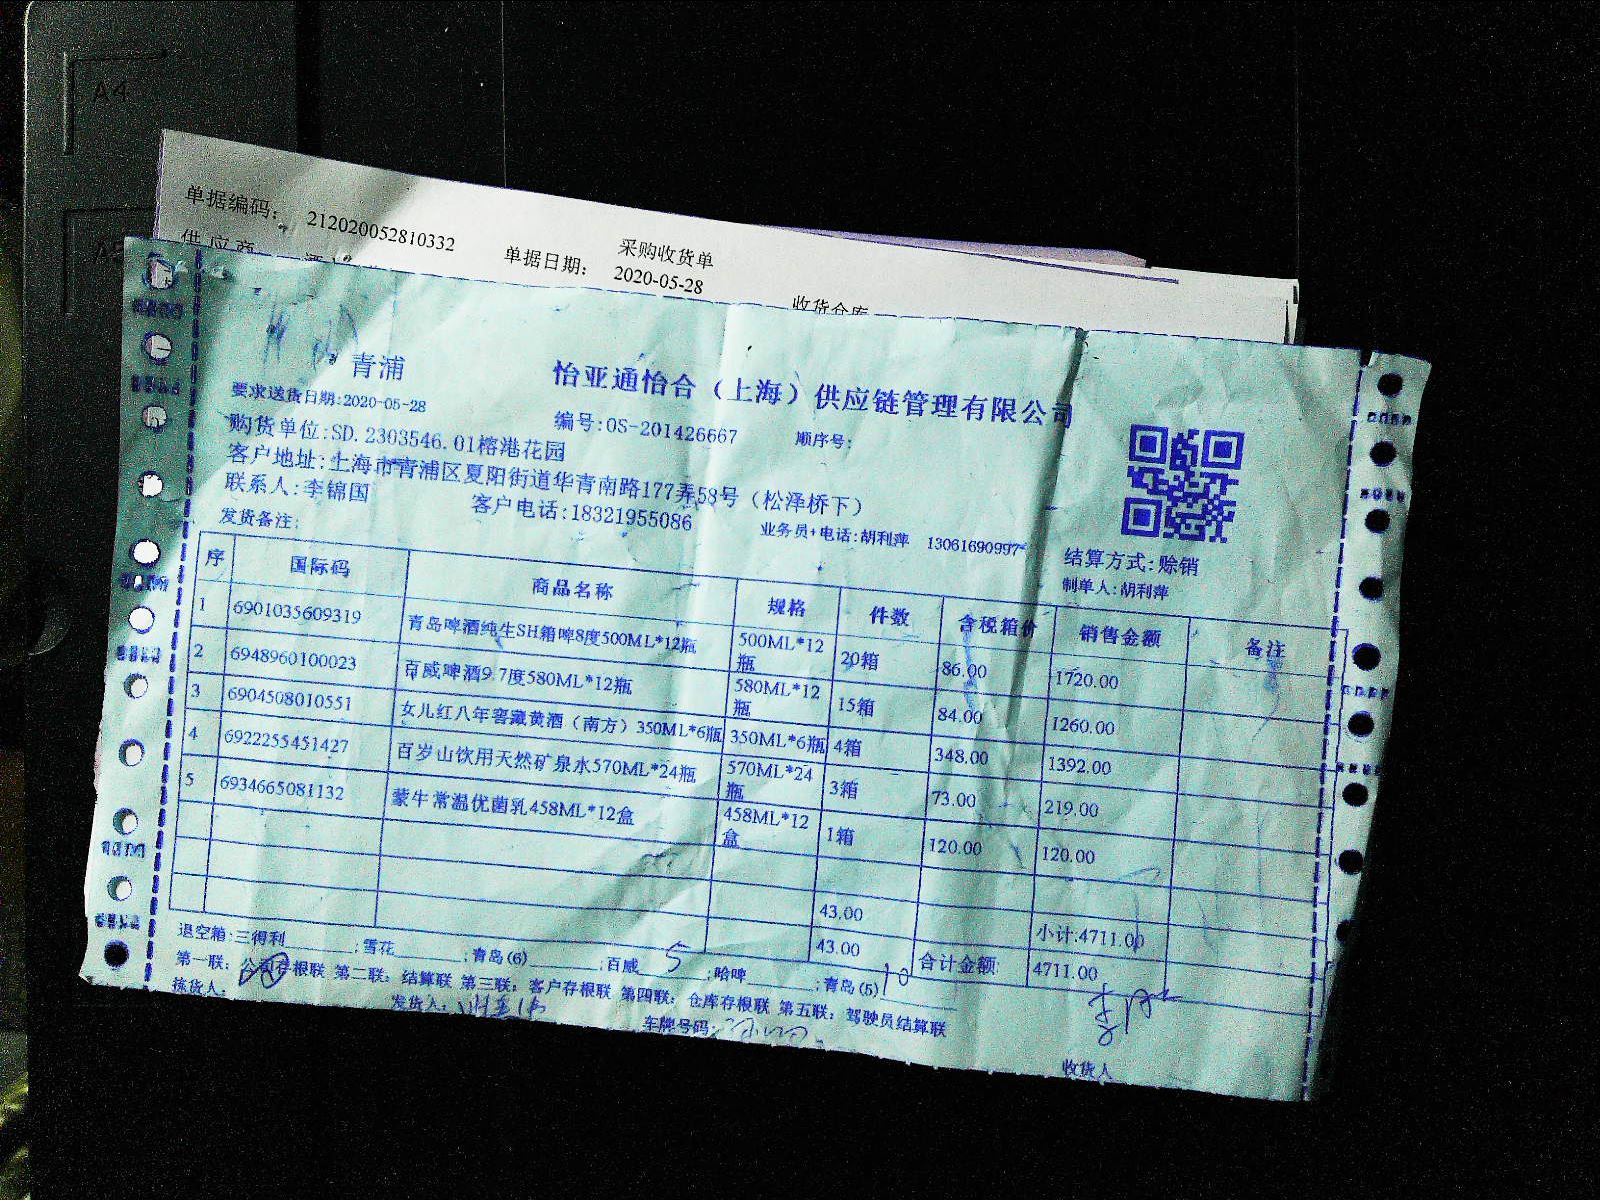 A4
单据编码： 212020052810332
采购收货单
供应商
单据日期： 2020-05-28
收货仓库
青浦
怡亚通怡合（上海）供应链管理有限公司
要求送货日期:2020-05-28
编号:OS-201426667 顺序号:
购货单位:SD.2303546.01榕港花园
客户地址:上海市青浦区夏阳街道华青南路177弄58号（松泽桥下）
联系人:李锦国 客户电话:18321955086 业务员+电话:胡利萍 13061690997
结算方式:赊销
发货备注:
制单人:胡利萍
序 国际码 商品名称 规格 件数 含税箱价 销售金额 备注
1 6901035609319 青岛啤酒纯生SH箱啤8度500ML*12瓶 500ML*12瓶 20箱 86.00 1720.00
2 6948960100023 百威啤酒9.7度580ML*12瓶 580ML*12瓶 15箱 84.00 1260.00
3 6904508010551 女儿红八年窖藏黄酒（南方）350ML*6瓶 350ML*6瓶 4箱 348.00 1392.00
4 6922255451427 百岁山饮用天然矿泉水570ML*24瓶 570ML*24瓶 3箱 73.00 219.00
5 6934665081132 蒙牛常温优菌乳458ML*12盒 458ML*12盒 1箱 120.00 120.00
43.00 小计:4711.00
43.00 合计金额: 4711.00
退空箱:三得利 ;雪花 ;青岛(6) ;百威 5 ;哈啤 ;青岛(5) 10
第一联：公司存根联 第二联：结算联 第三联：客户存根联 第四联：仓库存根联 第五联：驾驶员结算联
拣货人: 发货人: 车牌号码: 收货人